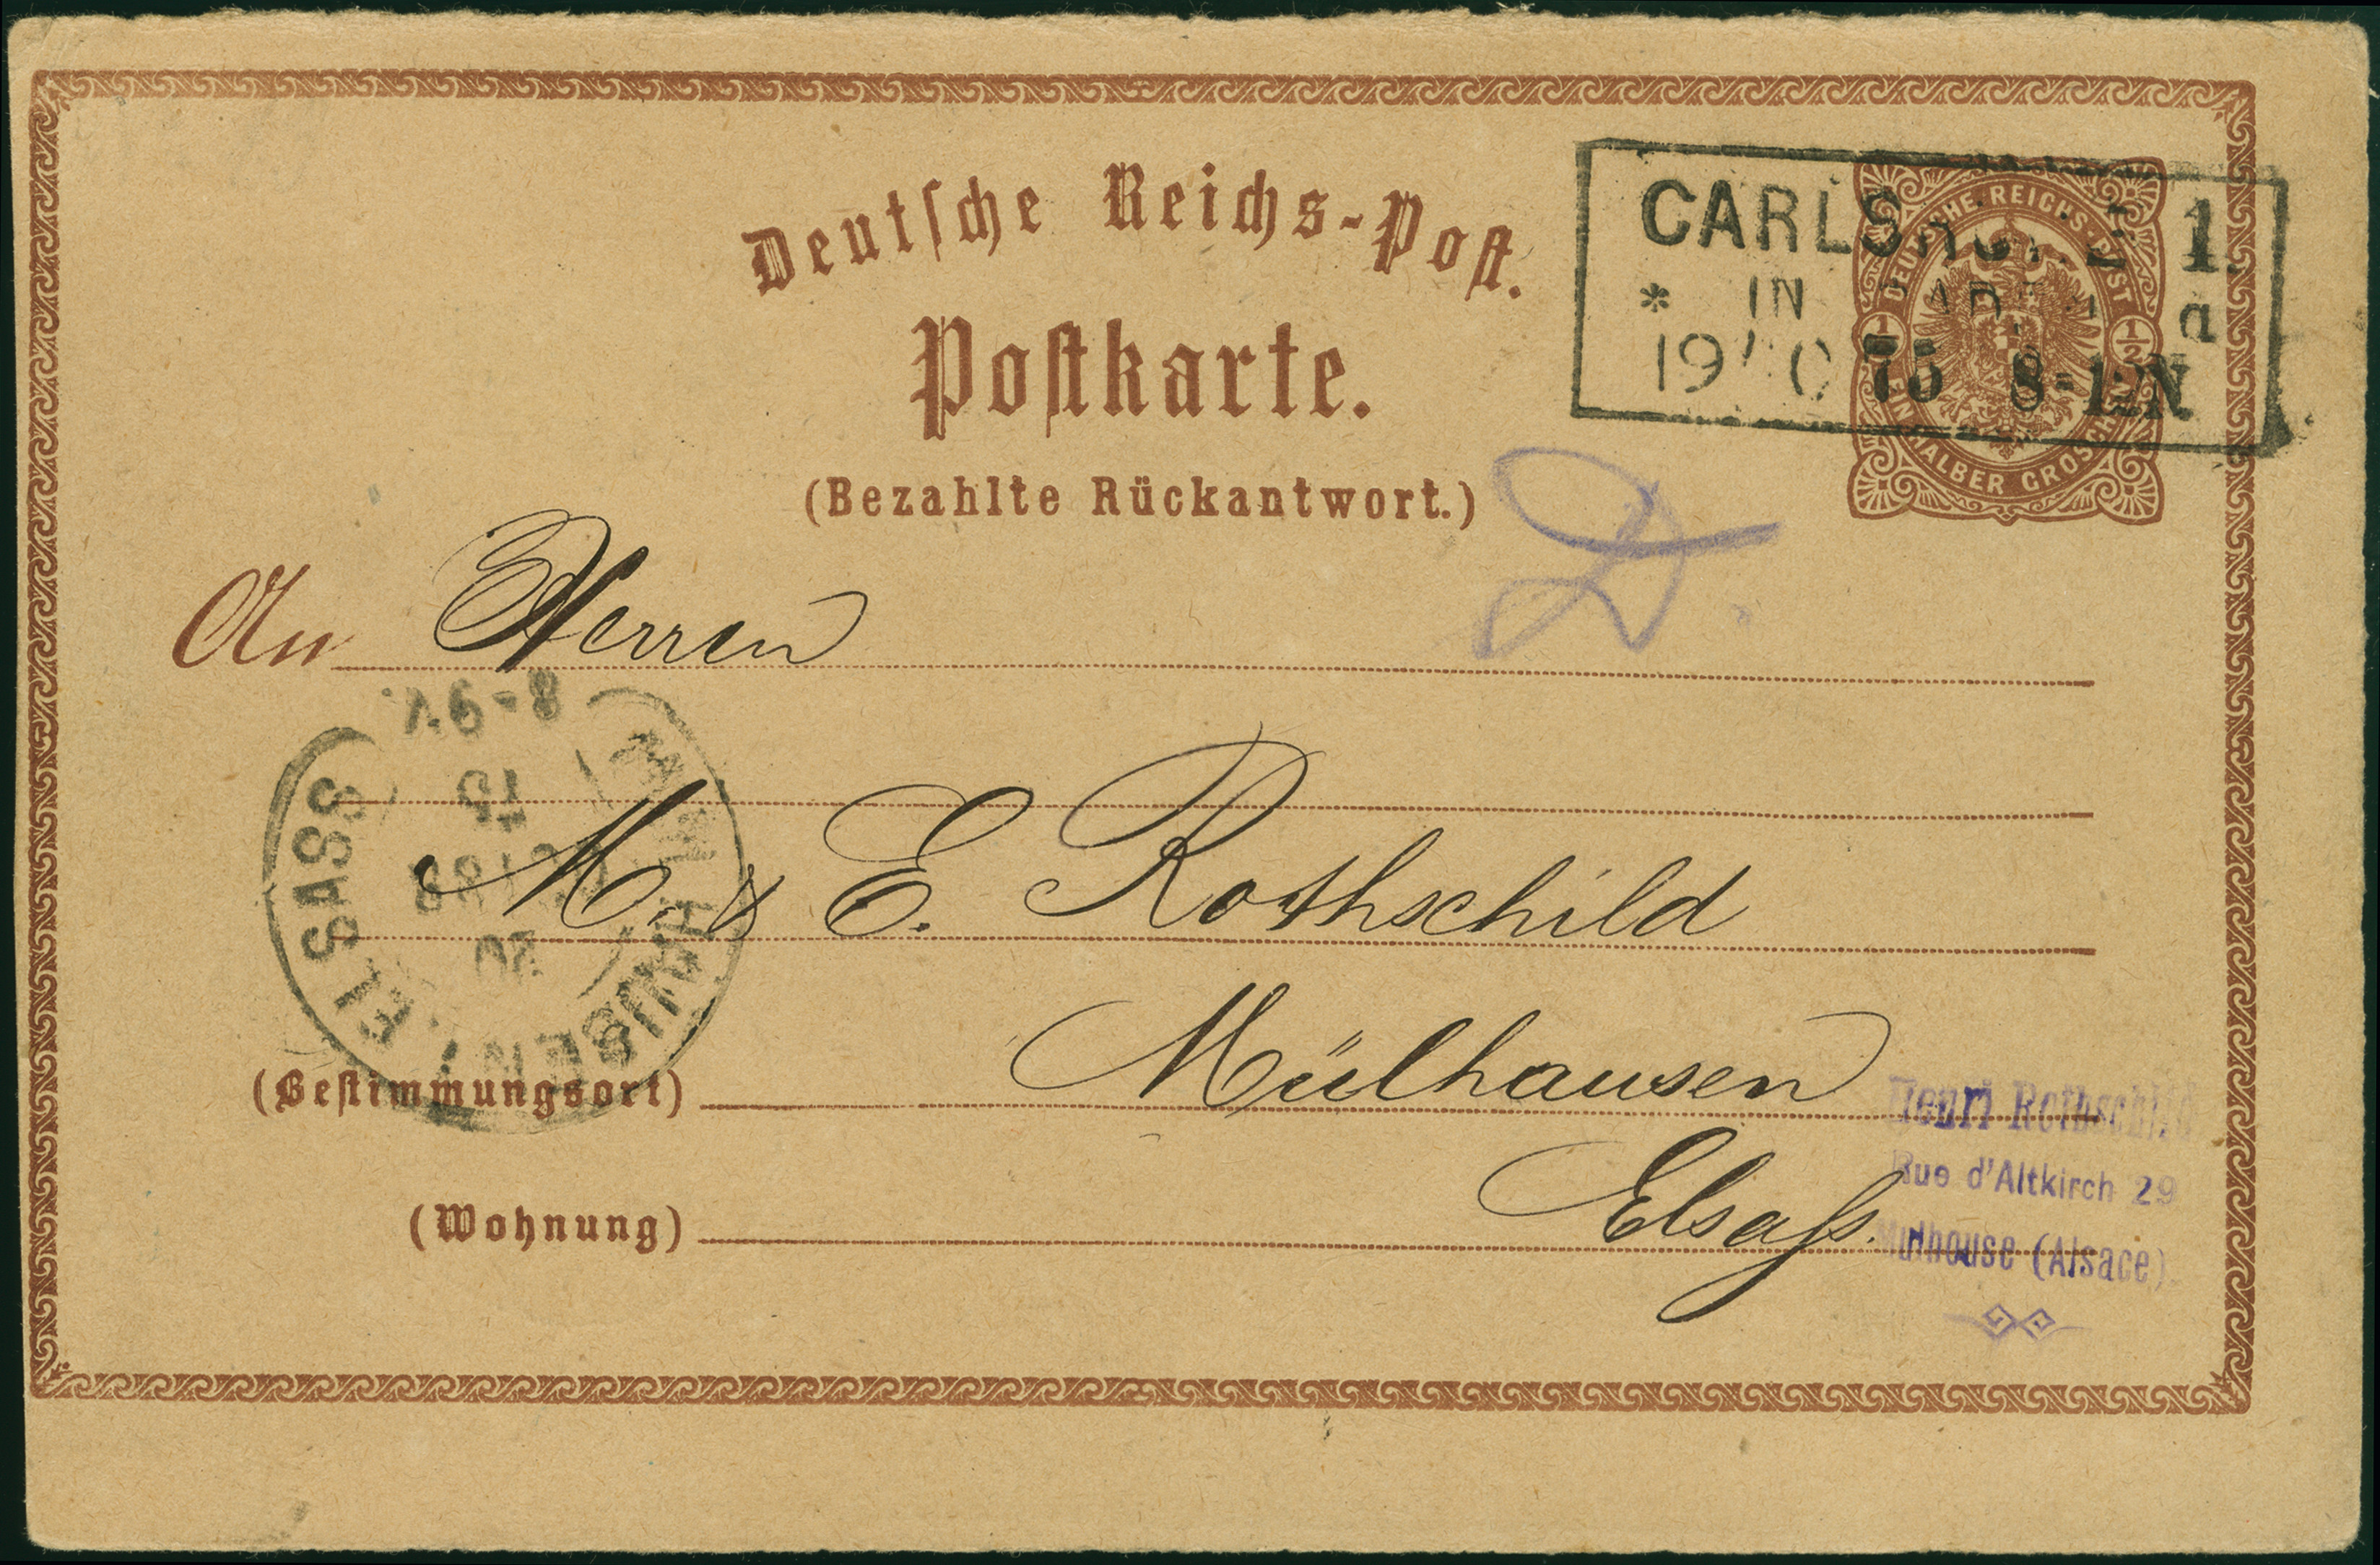 Deutsche Reichs-Post.
Postkarte.
(Bezahlte Rückantwort.)
CARLSRUHE 1.
* IN BADEN a
19 10 75 8-12N
DEUTSCHE REICHS-POST
½ ½
EIN HALBER GROSCHEN
An Herren
M. & E. Rothschild
(Bestimmungsort) Mülhausen
(Wohnung) Elsaß.
8-9V.
75
20
MÜLHAUSEN I. ELSASS
Henri Rothschild
Rue d'Altkirch 29
Mulhouse (Alsace).